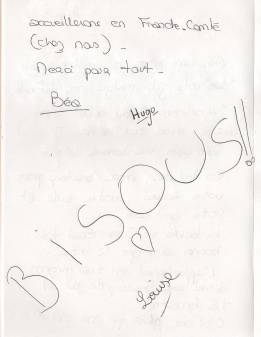 accueillerons en Franche-Comté
(chez nous) -
Merci pour tout -
Béa
Hugo
BISOUS!!
Louise